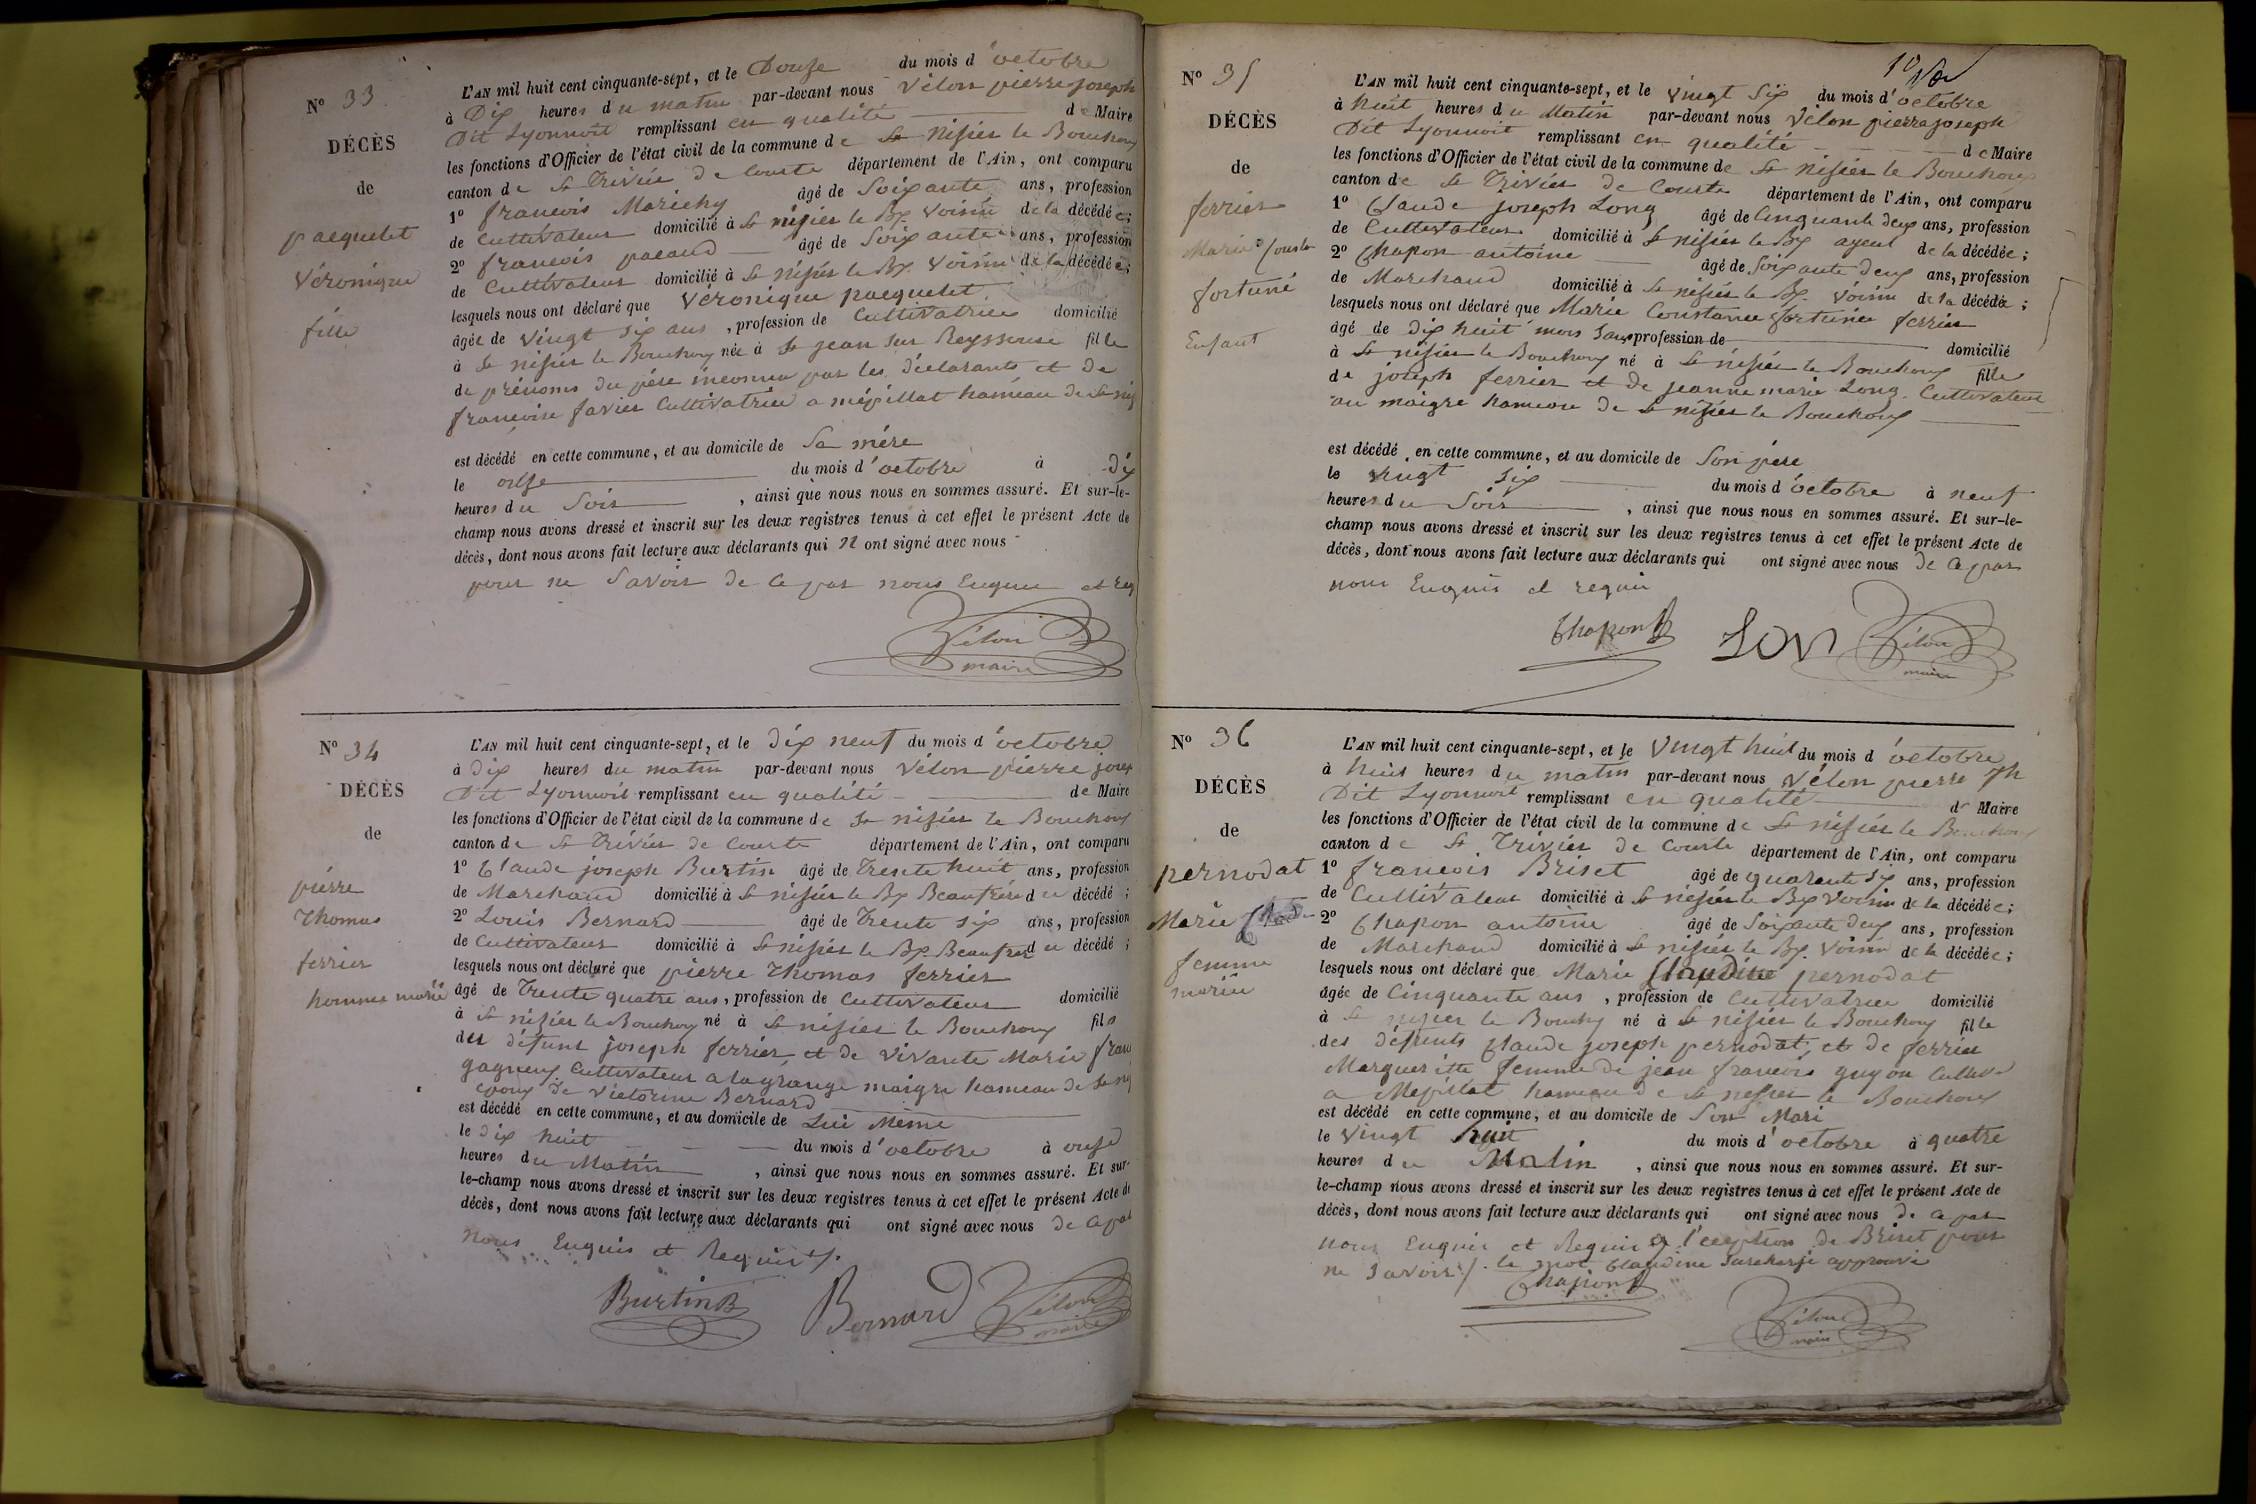 N° 33
DÉCÈS
de
pacquelet
Véronique
fille
L'AN mil huit cent cinquante-sept, et le Douze du mois d'octobre
à Dix heures du matin par-devant nous Vélon pierre joseph
Dit Lyonnoit remplissant en qualité de Maire
les fonctions d'Officier de l'état civil de la commune de St Nisier le Bouchoux
canton de St Trivier de Courte département de l'Ain, ont comparu
1° francois Marichy âgé de Soixante ans, profession
de Cultivateur domicilié à St nisier le Bx Voisin de la décédée;
2° francois pacaud âgé de Soixante ans, profession
de Cultivateur domicilié à St nisier le Bx Voisin de la décédée;
lesquels nous ont déclaré que Véronique pacquelet
âgée de Vingt Six ans, profession de Cultivatrice domicilié
à St nisier le Bouchoux née à St jean sur Reyssouse fille
de prénoms du père inconnu par les déclarants et de
francoise favier Cultivatrice a mépillat hameau de St nis
est décédé en cette commune, et au domicile de Sa mére
le onze du mois d'octobre à dix
heures du Soir, ainsi que nous nous en sommes assuré. Et sur-le-
champ nous avons dressé et inscrit sur les deux registres tenus à cet effet le présent Acte de
décès, dont nous avons fait lecture aux déclarants qui n ont signé avec nous
pour ne Savoir de ce par nous Enquis et req
Vélon
maire
N° 34
DÉCÈS
de
pierre
Thomas
ferrier
homme marié
L'AN mil huit cent cinquante-sept, et le dix neuf du mois d'octobre
à dix heures du matin par-devant nous Vélon pierre josep
Dit Lyonnoit remplissant en qualité de Maire
les fonctions d'Officier de l'état civil de la commune de St nisier le Bouchoux
canton de St Trivier de Courte département de l'Ain, ont comparu
1° Claude joseph Burtin âgé de Trente huit ans, profession
de Marchand domicilié à St nisier le Bx Beaufrere du décédé;
2° Louis Bernard âgé de Trente six ans, profession
de Cultivateur domicilié à St nisier le Bx Beaufrer du décédé;
lesquels nous ont déclaré que pierre Thomas ferrier
âgé de Trente quatre ans, profession de Cultivateur domicilié
à St nisier le Bouchoux né à St nisier le Bouchoux fils
du défunt joseph ferrier et de vivante Marie fran
gagneux Cultivateur a lagrange maigre hameau de St nis
epoux de Victorine Bernard
est décédé en cette commune, et au domicile de Lui Même
le dix huit du mois d'octobre à onze
heures du Matin, ainsi que nous nous en sommes assuré. Et sur-
le-champ nous avons dressé et inscrit sur les deux registres tenus à cet effet le présent Acte de
décès, dont nous avons fait lecture aux déclarants qui ont signé avec nous de ce par
nous Enquis et Requis
Burtin Bernard Vélon
maire
N° 35
DÉCÈS
de
ferrier
Marie Const
fortuné
Enfant
L'AN mil huit cent cinquante-sept, et le vingt Six du mois d'octobre
à huit heures du Matin par-devant nous Vélon pierre joseph
Dit Lyonnoit remplissant en qualité de Maire
les fonctions d'Officier de l'état civil de la commune de St nisier le Bouchoux
canton de St Trivier de Courte département de l'Ain, ont comparu
1° Claude joseph Long âgé de Cinquante deux ans, profession
de Cultivateur domicilié à St nisier le Bx ayeul de la décédée;
2° Chapon antoine âgé de Soixante deux ans, profession
de Marchand domicilié à St nisier le Bx Voisin de la décédée;
lesquels nous ont déclaré que Marie Constance fortunée ferrier
âgé de dix huit mois Sans profession de domicilié
à St nisier le Bouchoux né à St nisier le Bouchoux fille
de joseph ferrier et de jeanne marie Long Cultivateur
au maigre hameau de St nisier le Bouchoux
est décédé en cette commune, et au domicile de Son père
le Vingt Six du mois d'octobre à neuf
heures du Soir, ainsi que nous nous en sommes assuré. Et sur-le-
champ nous avons dressé et inscrit sur les deux registres tenus à cet effet le présent Acte de
décès, dont nous avons fait lecture aux déclarants qui ont signé avec nous de ce par
nous Enquis et requis
Chapon LON Vélon
maire
N° 36
DÉCÈS
de
pernodat
Marie
femme
mariée
L'AN mil huit cent cinquante-sept, et le Vingt huit du mois d'octobre
à huit heures du matin par-devant nous Vélon pierre jh
Dit Lyonnoit remplissant en qualité de Maire
les fonctions d'Officier de l'état civil de la commune de St nisier le Bouchoux
canton de St Trivier de Courte département de l'Ain, ont comparu
1° francois Briset âgé de quarante Six ans, profession
de Cultivateur domicilié à St nisier le Bx Voisin de la décédée;
2° Chapon antoine âgé de Soixante deux ans, profession
de Marchand domicilié à St nisier le Bx Voisin de la décédée;
lesquels nous ont déclaré que Marie Claudine pernodat
âgée de Cinquante ans, profession de Cultivatrice domicilié
à St nisier le Bouchx né à St nisier le Bouchoux fille
des défunts Claude joseph pernodat et de ferrier
Margueritte femme de jean francois guyon Cultiv
a Mépillat hameau de St nisier le Bouchoux
est décédé en cette commune, et au domicile de Son Mari
le Vingt huit du mois d'octobre à quatre
heures du Matin, ainsi que nous nous en sommes assuré. Et sur-
le-champ nous avons dressé et inscrit sur les deux registres tenus à cet effet le présent Acte de
décès, dont nous avons fait lecture aux déclarants qui ont signé avec nous de ce par
nous Enquis et Requis a l'éception de Briset pour
ne Savoir le mot Claudine Surchargé approuvé
Chapon
Vélon
maire